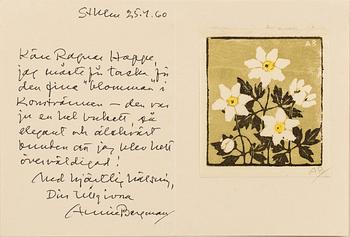 Sthlm 25.4.60
Käre Ragnar Hoppe,
jag måste ju tacka för
den fina "blomman" i
Konstrannen – den var
ju en hel bukett, så
elegant och älskvärt
bunden att jag blev helt
överväldigad!
Med hjärtlig hälsning,
Din tillgivna
Annie Bergman
AB
AB